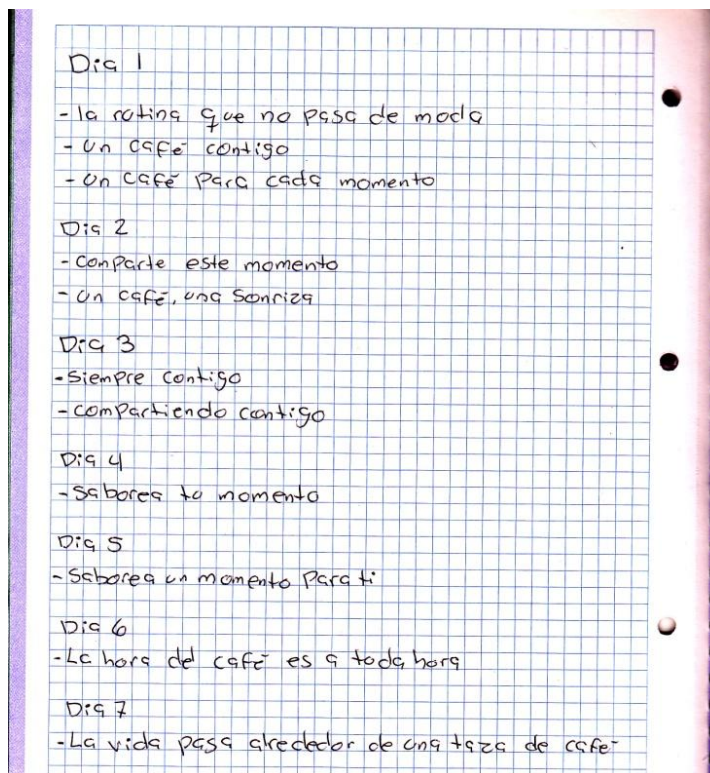 Dia 1
- la rutina que no pasa de moda
- un café contigo
- un café para cada momento
Dia 2
- comparte este momento
- un café, una sonriza
Dia 3
- siempre contigo
- compartiendo contigo
Dia 4
- Saborea tu momento
Dia 5
- Saborea un momento para ti
Dia 6
- La hora del café es a toda hora
Dia 7
- La vida pasa alrededor de una taza de café